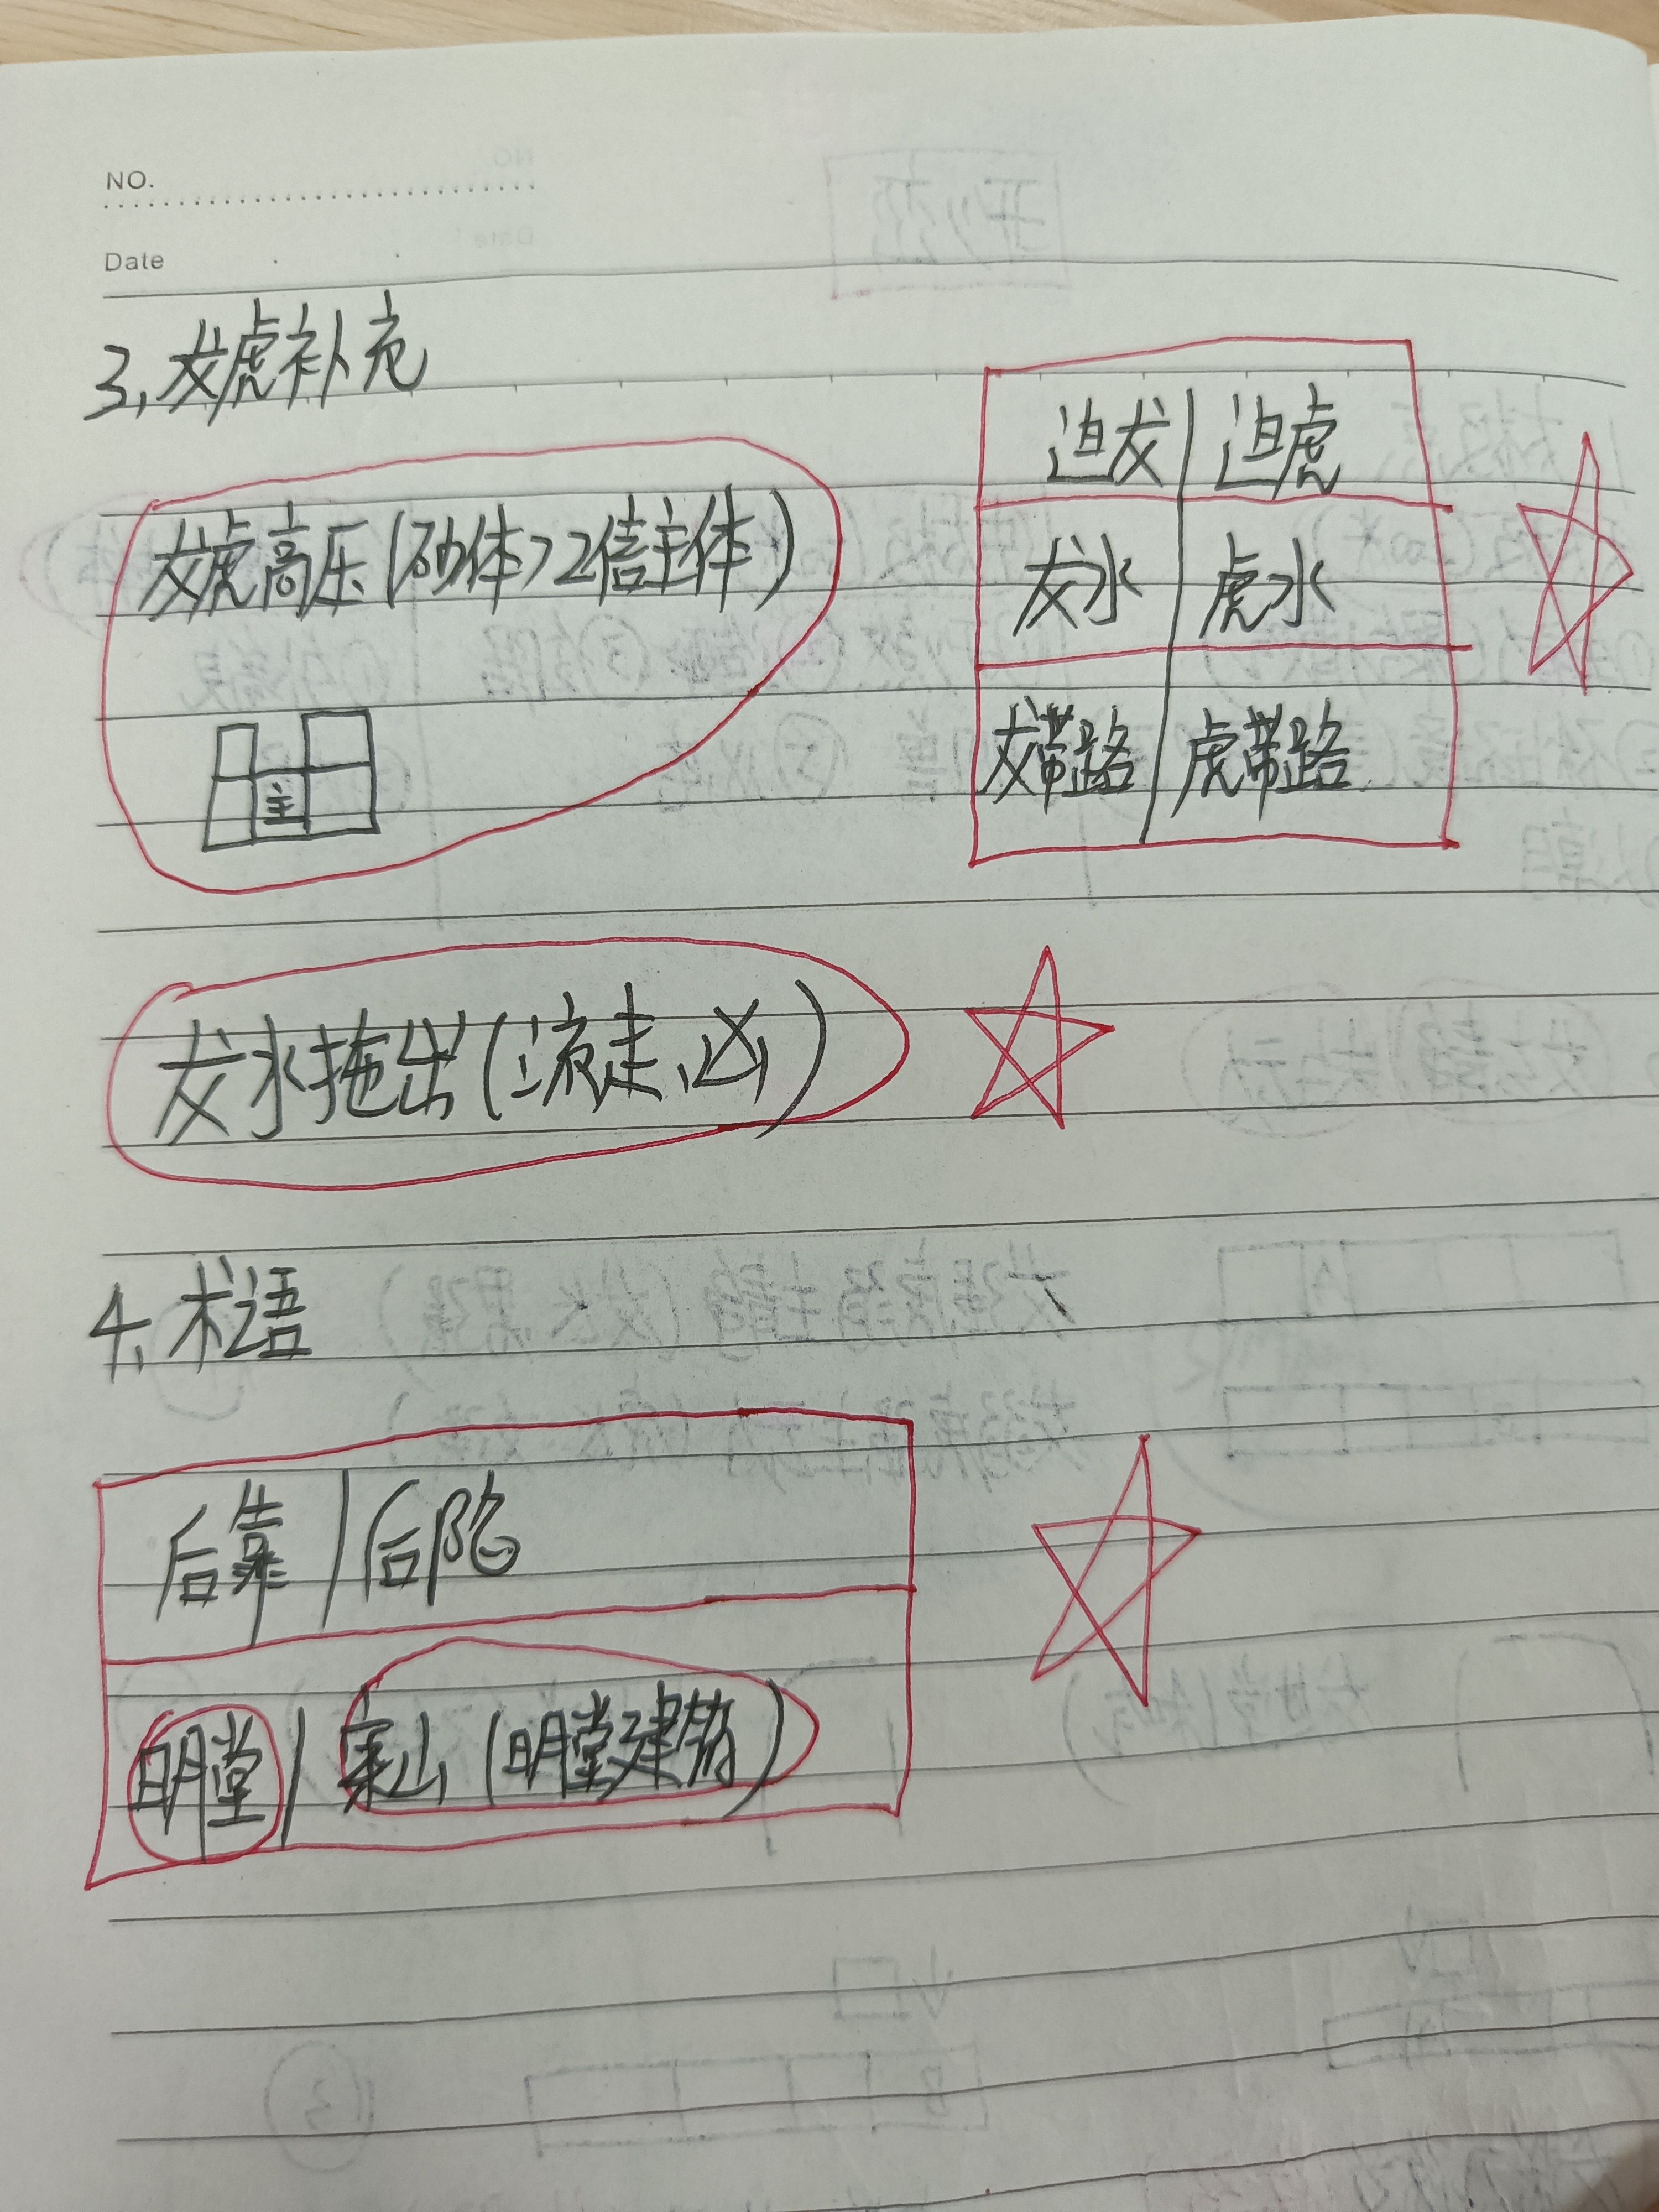 NO.
Date
3、龙虎补充
龙虎高压(砂体>2倍主体)
主
迫龙|迫虎
龙水|虎水
龙带路|虎带路
龙水拖出(流走、凶)
4、术语
后靠|后陷
明堂|案山(明堂建筑)